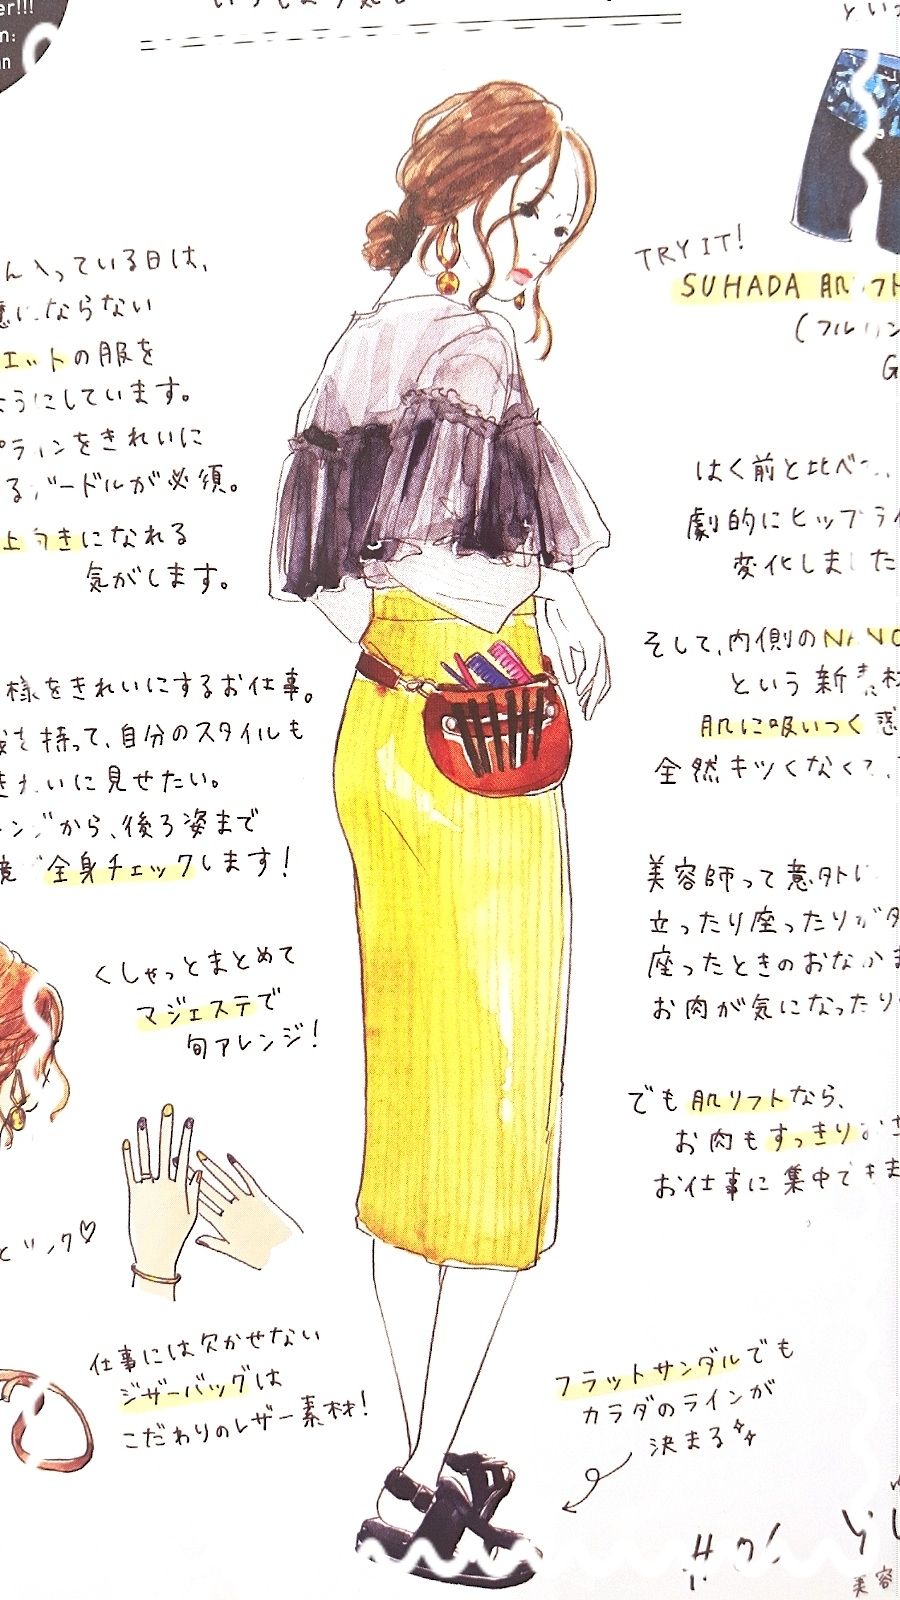 er!!!
n:
an
TRY IT!
SUHADA 肌リフト
(フルリン
G
入っている日は、
ならない
エットの服を
ようにしています。
プラインをきれいに
るガードルが必須。
上向きになれる
気がします。
はく前と比べて、
劇的にヒップライ
変化しました
そして、内側のNANO
という新素材
肌に吸いつく感
全然キツくなくて、
様をきれいにするお仕事。
を持って、自分のスタイルも
きれいに見せたい。
レンジから、後ろ姿まで
鏡で全身チェックします!
美容師って意外に
立ったり座ったりが多
座ったときのおなかま
お肉が気になったり
くしゃっとまとめて
マジェステで
旬アレンジ!
でも肌リフトなら、
お肉もすっきりおさ
お仕事に集中できま
仕事には欠かせない
シザーバッグは
こだわりのレザー素材!
フラットサンダルでも
カラダのラインが
決まる
美容